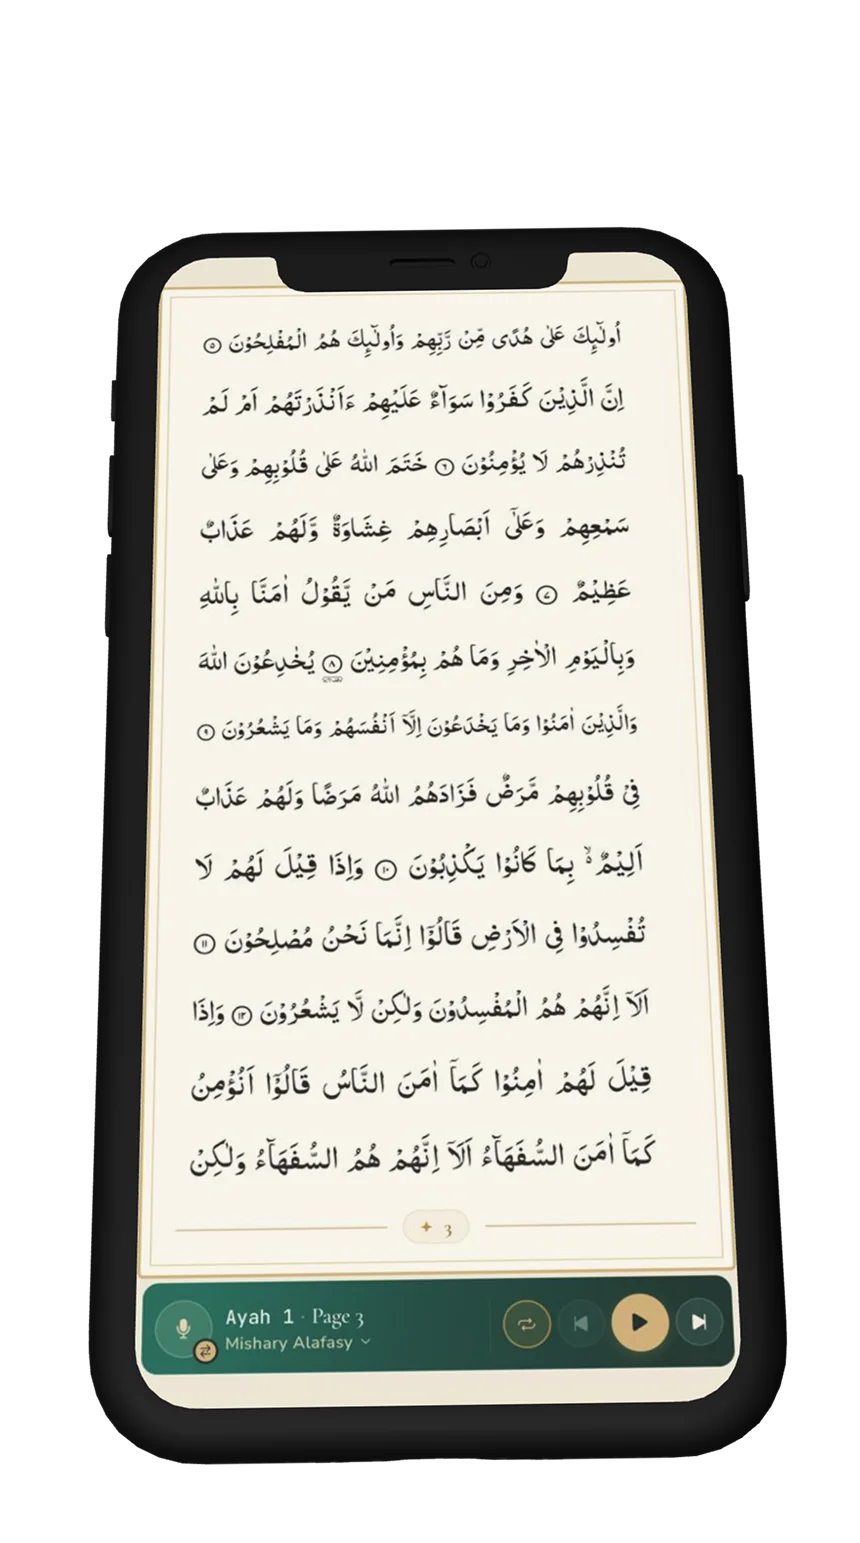 اُولٰٓئِكَ عَلٰى هُدًى مِّنْ رَّبِّهِمْ وَاُولٰٓئِكَ هُمُ الْمُفْلِحُوْنَ ۵
اِنَّ الَّذِيْنَ كَفَرُوْا سَوَآءٌ عَلَيْهِمْ ءَاَنْذَرْتَهُمْ اَمْ لَمْ
تُنْذِرْهُمْ لَا يُؤْمِنُوْنَ ٦ خَتَمَ اللّٰهُ عَلٰى قُلُوْبِهِمْ وَعَلٰى
سَمْعِهِمْ وَعَلٰٓى اَبْصَارِهِمْ غِشَاوَةٌ وَّلَهُمْ عَذَابٌ
عَظِيْمٌ ٧ وَمِنَ النَّاسِ مَنْ يَّقُوْلُ اٰمَنَّا بِاللّٰهِ
وَبِالْيَوْمِ الْاٰخِرِ وَمَا هُمْ بِمُؤْمِنِيْنَ ٨ يُخٰدِعُوْنَ اللّٰهَ
وَالَّذِيْنَ اٰمَنُوْا وَمَا يَخْدَعُوْنَ اِلَّآ اَنْفُسَهُمْ وَمَا يَشْعُرُوْنَ ٩
فِيْ قُلُوْبِهِمْ مَّرَضٌ فَزَادَهُمُ اللّٰهُ مَرَضًا وَلَهُمْ عَذَابٌ
اَلِيْمٌۢ ۙ بِمَا كَانُوْا يَكْذِبُوْنَ ١٠ وَاِذَا قِيْلَ لَهُمْ لَا
تُفْسِدُوْا فِى الْاَرْضِ قَالُوْٓا اِنَّمَا نَحْنُ مُصْلِحُوْنَ ١١
اَلَآ اِنَّهُمْ هُمُ الْمُفْسِدُوْنَ وَلٰكِنْ لَّا يَشْعُرُوْنَ ١٢ وَاِذَا
قِيْلَ لَهُمْ اٰمِنُوْا كَمَآ اٰمَنَ النَّاسُ قَالُوْٓا اَنُؤْمِنُ
كَمَآ اٰمَنَ السُّفَهَآءُ اَلَآ اِنَّهُمْ هُمُ السُّفَهَآءُ وَلٰكِنْ
3
Ayah 1 · Page 3
Mishary Alafasy